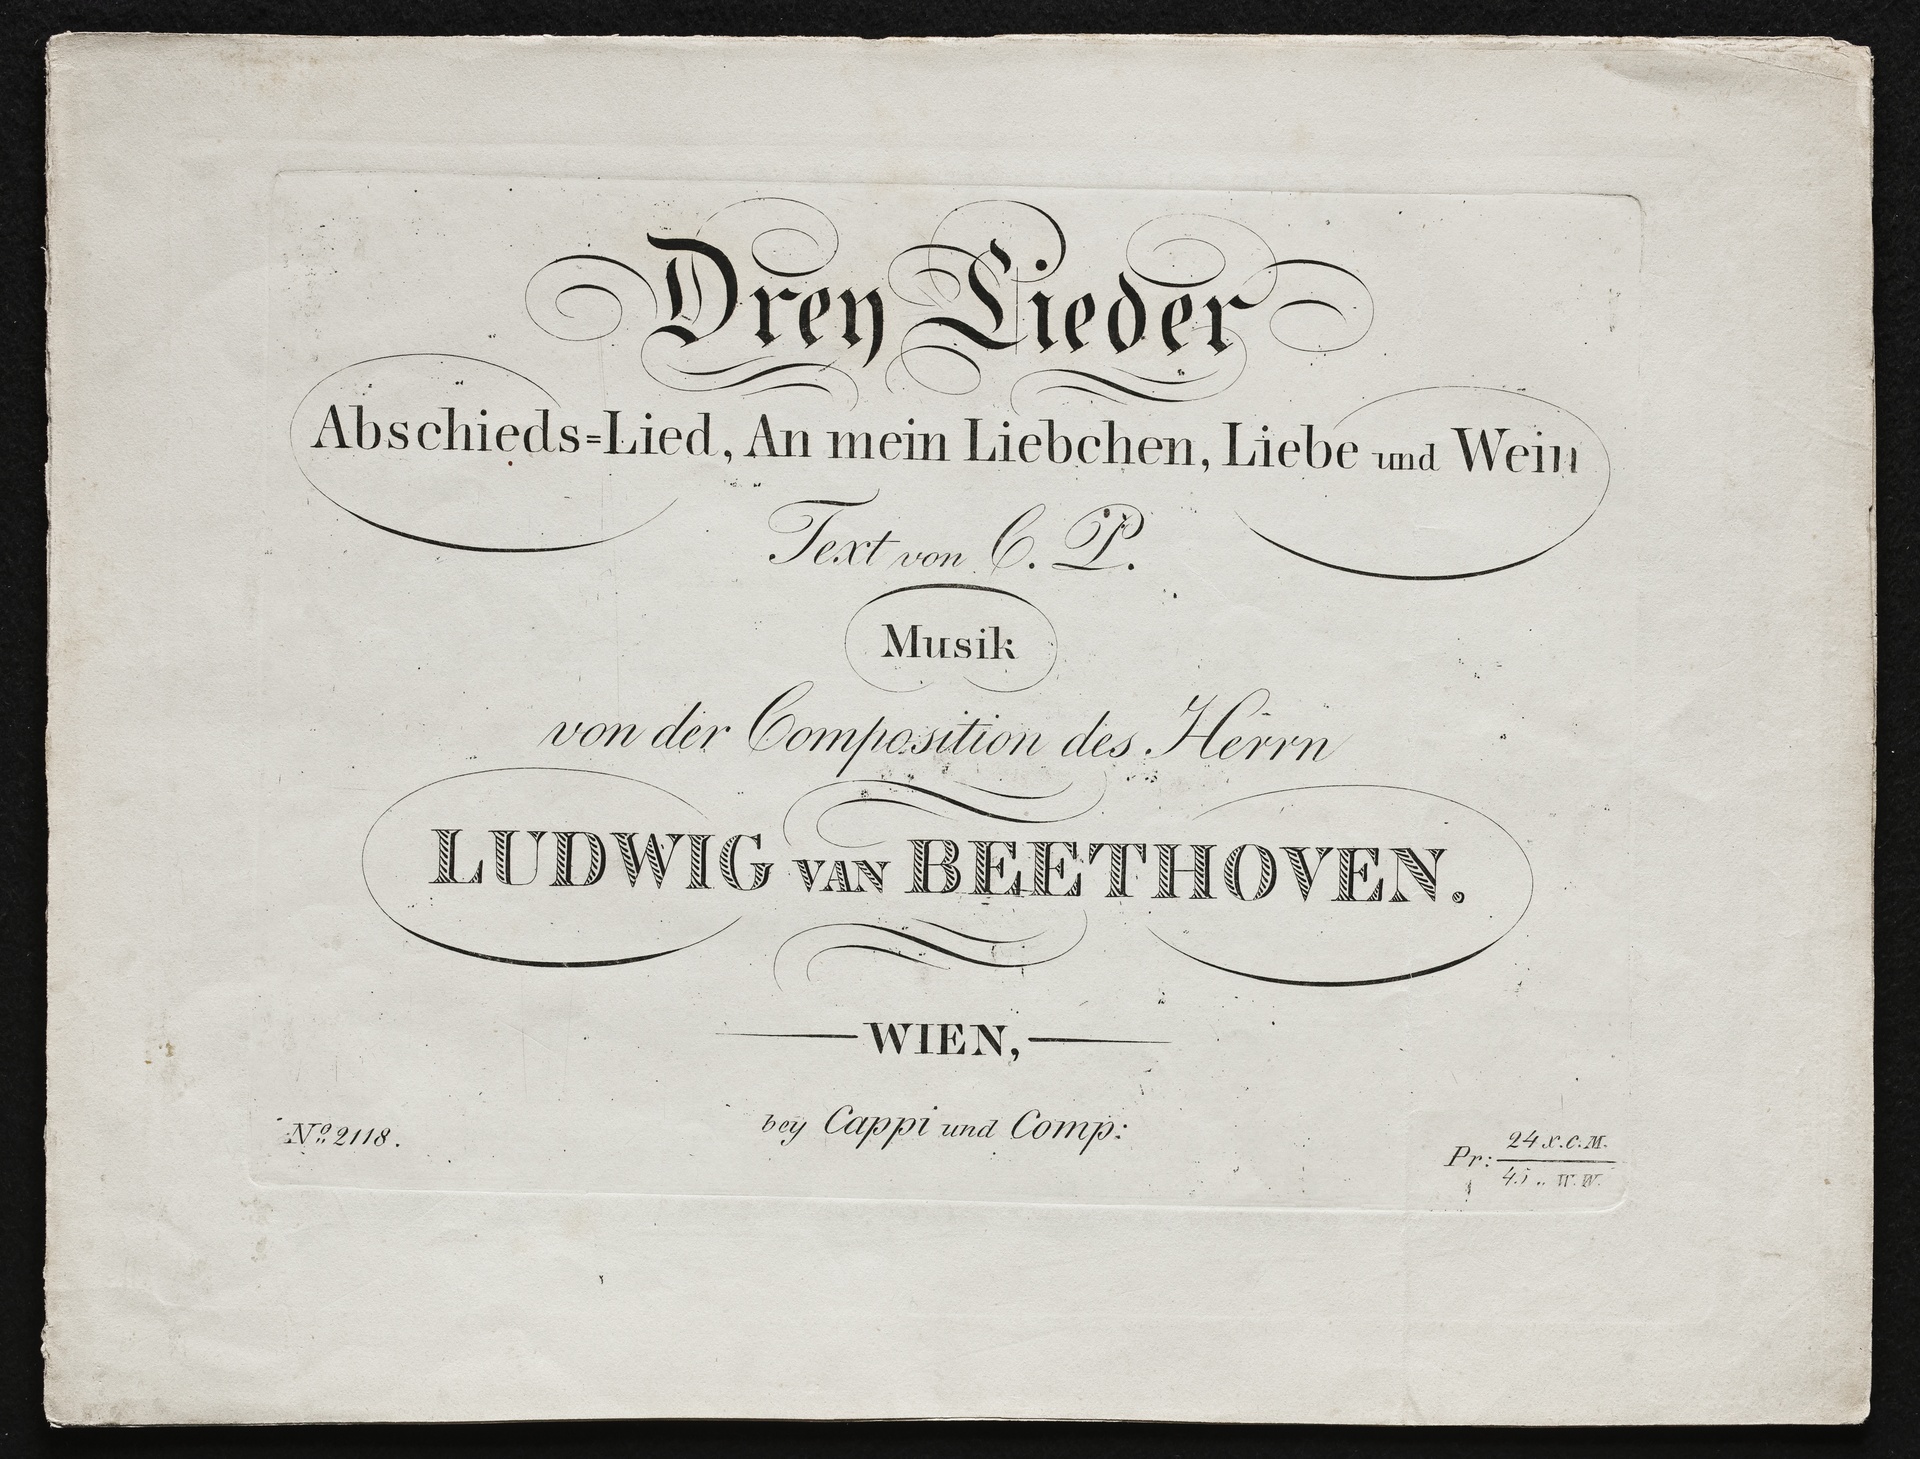 Drey Lieder
Abschieds=Lied, An mein Liebchen, Liebe und Wein
Text von C. P.
Musik
von der Composition des Herrn
LUDWIG VAN BEETHOVEN.
WIEN,
bey Cappi und Comp:
No. 2118.
Pr: 24 x.C.M.
45 „ W.W.